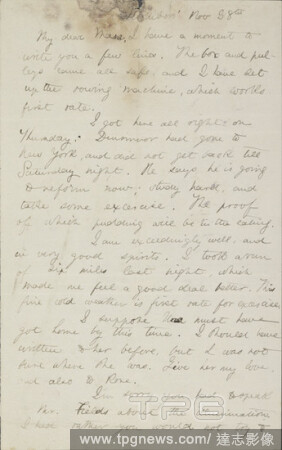 Nov 28th
My dear Mama, I have a moment to
write you a few lines. The box and pul-
leys came all safe, and I have set
up the rowing machine, which works
first rate.
I got here all right on
Thursday. Dinsmoor had gone to
New York, and did not get back till
Saturday night. He says he is going
to reform now; study hard, and
take some excercise. The proof
of which pudding will be in the eating.
I am exceedingly well, and
in very good spirits. I took a run
of six miles last night, which
made me feel a good deal better. This
fine cold weather is first rate for exercise.
I suppose must have
got home by this time. I should have
written to her before, but I was not
sure where she was. Give her my love
and also to Rose.
I'm sorry you to speak
Mr. Fields about the
I had rather you would not say
TPG
www.tpgnews.com/達志影像